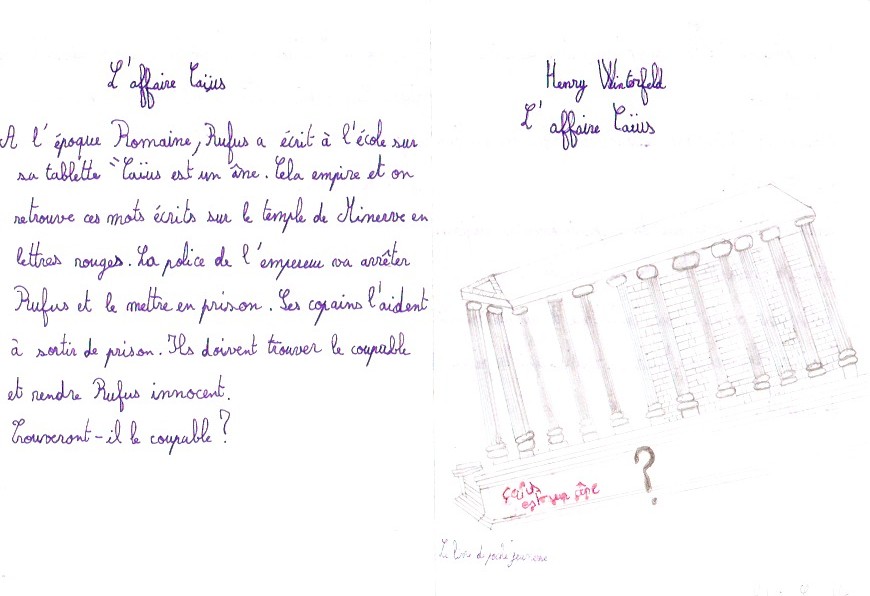 L'affaire Caïus
A l'époque Romaine, Rufus a écrit à l'école sur
sa tablette "Caïus est un âne. Cela empire et on
retrouve ces mots écrits sur le temple de Minerve en
lettres rouges. La police de l'empereur va arrêter
Rufus et le mettre en prison. Ses copains l'aident
à sortir de prison. Ils doivent trouver le coupable
et rendre Rufus innocent.
Trouveront-il le coupable ?
Henry Winterfeld
L'affaire Caïus
Caïus
est un âne
?
Le livre de poche jeunesse